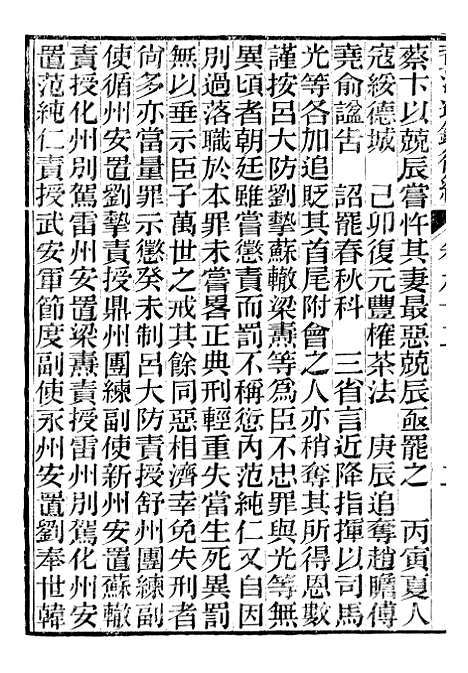 蔡卞以兢辰嘗忤其妻最惡兢辰亟罷之　丙寅夏人
寇綏德城　己卯復元豐榷茶法　庚辰追奪趙瞻傅
堯俞諡告　詔罷春秋科　三省言近降指揮以司馬
光等各加追貶其首尾附會之人亦稍奪其所得恩數
謹按呂大防劉摯蘇轍梁燾等爲臣不忠罪與光等無
異頃者朝廷雖嘗懲責而罰不稱愆內范純仁又自因
別過落職於本罪未嘗畧正典刑輕重失當生死異罰
無以垂示臣子萬世之戒其餘同惡相濟幸免失刑者
尙多亦當量罪示懲癸未制呂大防責授舒州團練副
使循州安置劉摯責授鼎州團練副使新州安置蘇轍
責授化州別駕雷州安置梁燾責授雷州別駕化州安
置范純仁責授武安軍節度副使永州安置劉奉世韓